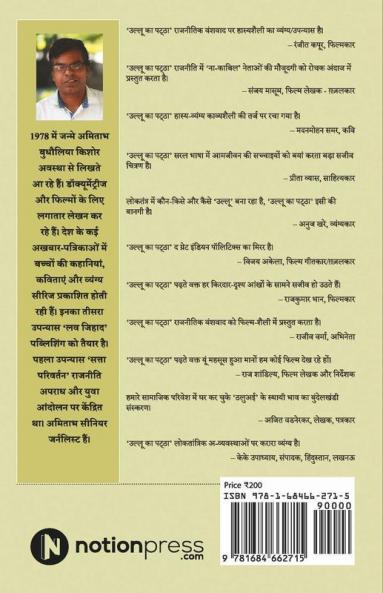 1978 में जन्मे अमिताभ
बुधौलिया किशोर
अवस्था से लिखते
आ रहे हैं। डॉक्यूमेंट्रीज
और फिल्मों के लिए
लगातार लेखन कर
रहे हैं। देश के कई
अखबार-पत्रिकाओं में
बच्चों की कहानियां,
कविताएं और व्यंग्य
सीरिज प्रकाशित होती
रही हैं। इनका तीसरा
उपन्यास 'लव जिहाद'
पब्लिशिंग को तैयार है।
पहला उपन्यास 'सत्ता
परिवर्तन' राजनीति
अपराध और युवा
आंदोलन पर केंद्रित
था। अमिताभ सीनियर
जर्नलिस्ट हैं।
'उल्लू का पट्ठा' राजनीतिक वंशवाद पर हास्यशैली का व्यंग्य/उपन्यास है।
– रंजीत कपूर, फिल्मकार
'उल्लू का पट्ठा' राजनीति में 'ना-काबिल' नेताओं की मौजूदगी को रोचक अंदाज में
प्रस्तुत करता है।
– संजय मासूम, फिल्म लेखक - ग़ज़लकार
'उल्लू का पट्ठा' हास्य-व्यंग्य काव्यशैली की तर्ज पर रचा गया है।
– मदनमोहन समर, कवि
'उल्लू का पट्ठा' सरल भाषा में आमजीवन की सच्चाइयों को बयां करता बड़ा सजीव
चित्रण है।
– प्रीता व्यास, साहित्यकार
लोकतंत्र में कौन-किसे और कैसे 'उल्लू' बना रहा है, 'उल्लू का पट्ठा' इसी की
बानगी है।
– अनुज खरे, व्यंग्यकार
'उल्लू का पट्ठा' द ग्रेट इंडियन पॉलिटिक्स का मिरर है।
– विजय अकेला, फिल्म गीतकार/ग़ज़लकार
'उल्लू का पट्ठा' पढ़ते वक्त हर किरदार-दृश्य आंखों के सामने सजीव हो उठते हैं।
– राजकुमार भान, फिल्मकार
'उल्लू का पट्ठा' राजनीतिक वंशवाद को फिल्म-शैली में प्रस्तुत करता है।
– राजीव वर्मा, अभिनेता
'उल्लू का पट्ठा' पढ़ते वक्त यूं महसूस हुआ मानों हम कोई फिल्म देख रहे हों।
– राज शांडिल्य, फिल्म लेखक और निर्देशक
हमारे सामाजिक परिवेश में घर कर चुके 'ठलुआई' के स्थायी भाव का बुंदेलखंडी
संस्करण।
– अजित वडनेरकर, लेखक, पत्रकार
'उल्लू का पट्ठा' लोकतांत्रिक अ-व्यवस्थाओं पर करारा व्यंग्य है।
– केके उपाध्याय, संपादक, हिंदुस्तान, लखनऊ
Price ₹200
ISBN 978-1-68466-271-5
90000
9 781684 662715
N notionpress
.com